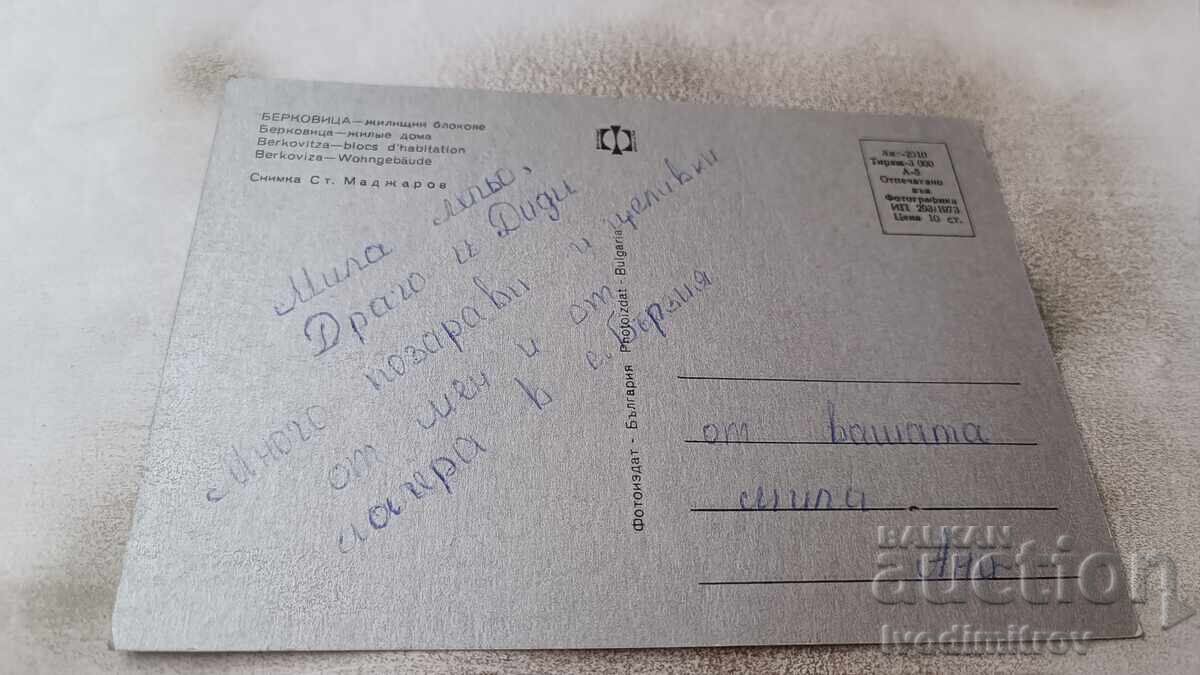 БЕРКОВИЦА—жилищни блокове
Берковица—жилые дома
Berkovitza—blocs d'habitation
Berkoviza—Wohngebäude
Снимка Ст. Маджаров
Мила Лпьо,
Драго и Диди
Много поздрави и целивки
от мен и от
лагера в с. Бързия
Фотоиздат - България Photoizdat - Bulgaria
Ак.-2010
Тираж-3 000
А-5
Отпечатано
във
Фотографика
ИП 293/1973
Цена 10 ст.
от вашата
мила
Ана
BALKAN
auction
Ivodimitrov